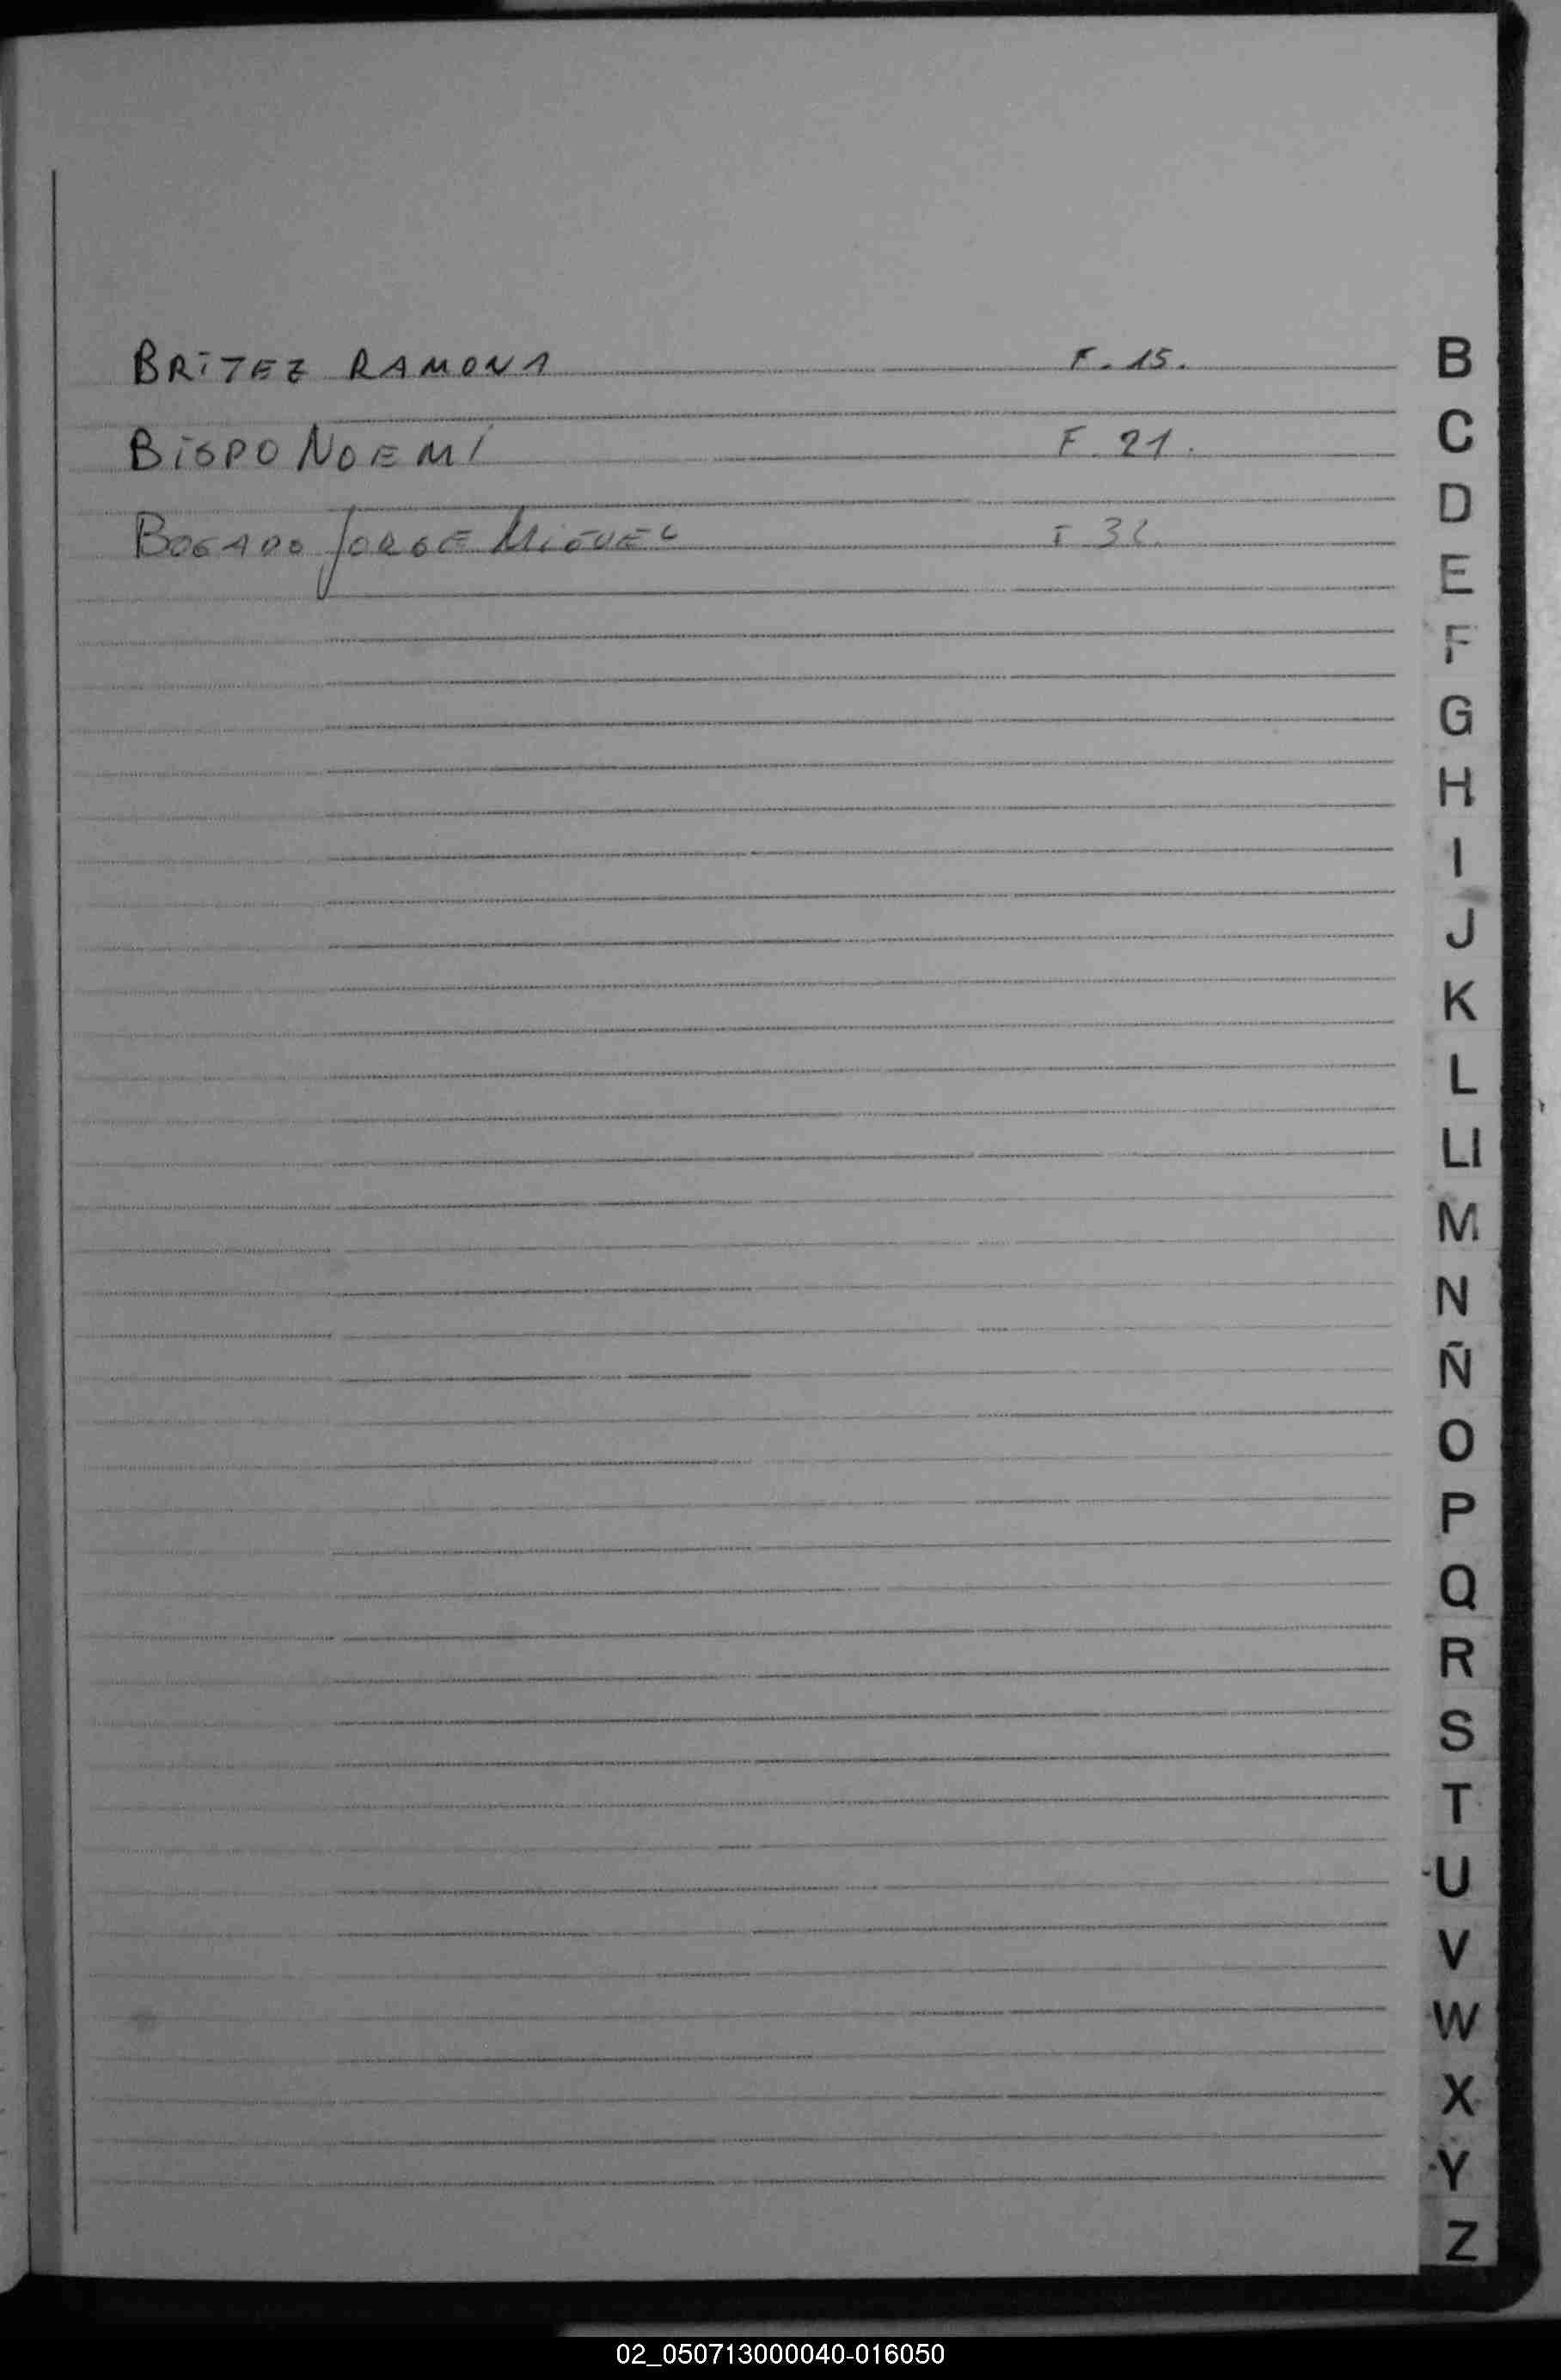 BRITEZ RAMONA F. 15.
BISPO NOEMÍ F. 21.
BOGADO JORGE MIGUEL F 32.
B
C
D
E
F
G
H
I
J
K
L
Ll
M
N
Ñ
O
P
Q
R
S
T
U
V
W
X
Y
Z
02_050713000040-016050